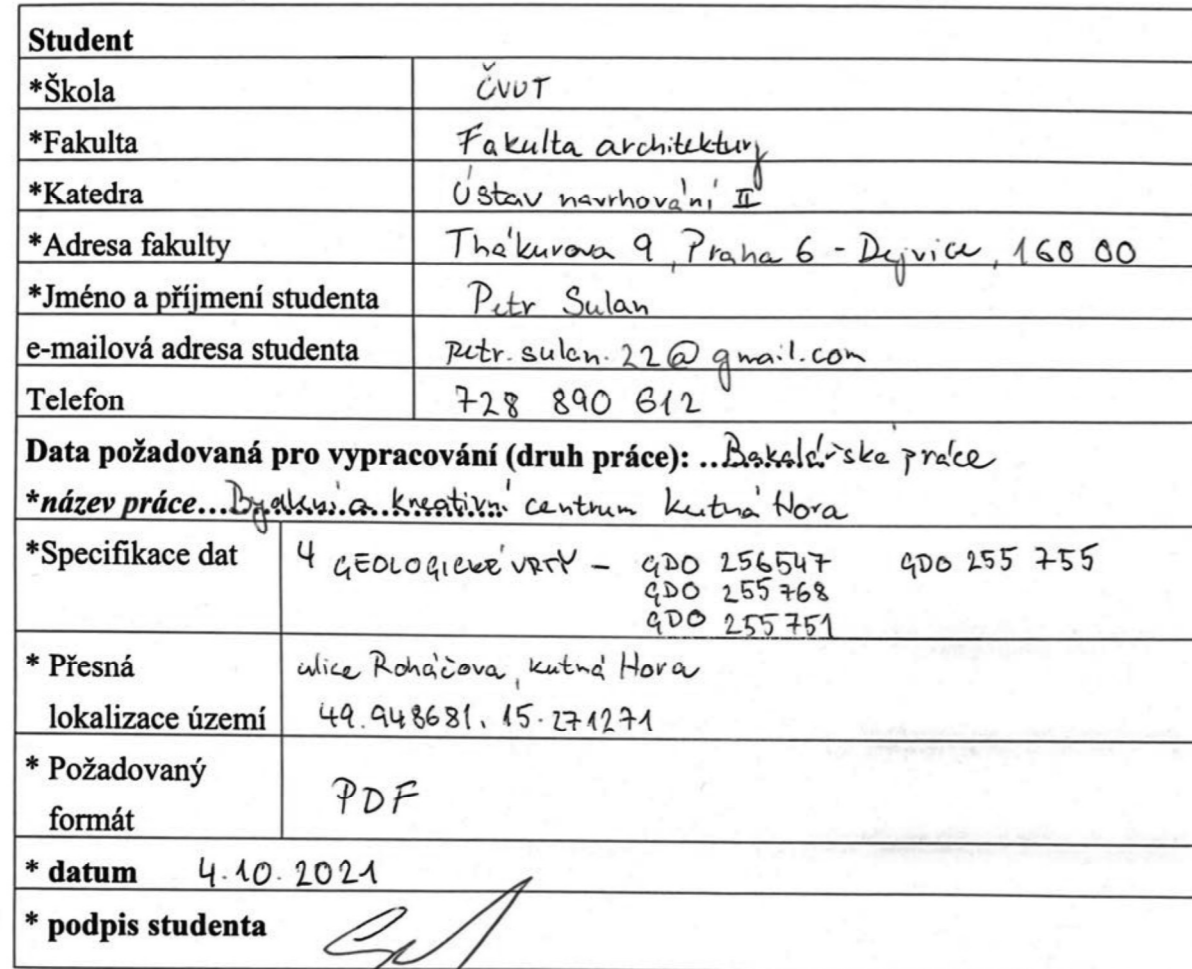 Student
*Škola ČVUT
*Fakulta Fakulta architektury
*Katedra Ústav navrhování II
*Adresa fakulty Thákurova 9, Praha 6 - Dejvice, 160 00
*Jméno a příjmení studenta Petr Sulan
e-mailová adresa studenta petr.sulan.22@gmail.com
Telefon 728 890 612
Data požadovaná pro vypracování (druh práce): ..Bakalářská práce
*název práce... a kreativní centrum Kutná Hora
*Specifikace dat 4 GEOLOGICKÉ VRTY - GDO 256547 GDO 255 755
GDO 255768
GDO 255751
* Přesná ulice Roháčova, Kutná Hora
lokalizace území 49.948681, 15.271271
* Požadovaný
formát PDF
* datum 4.10.2021
* podpis studenta